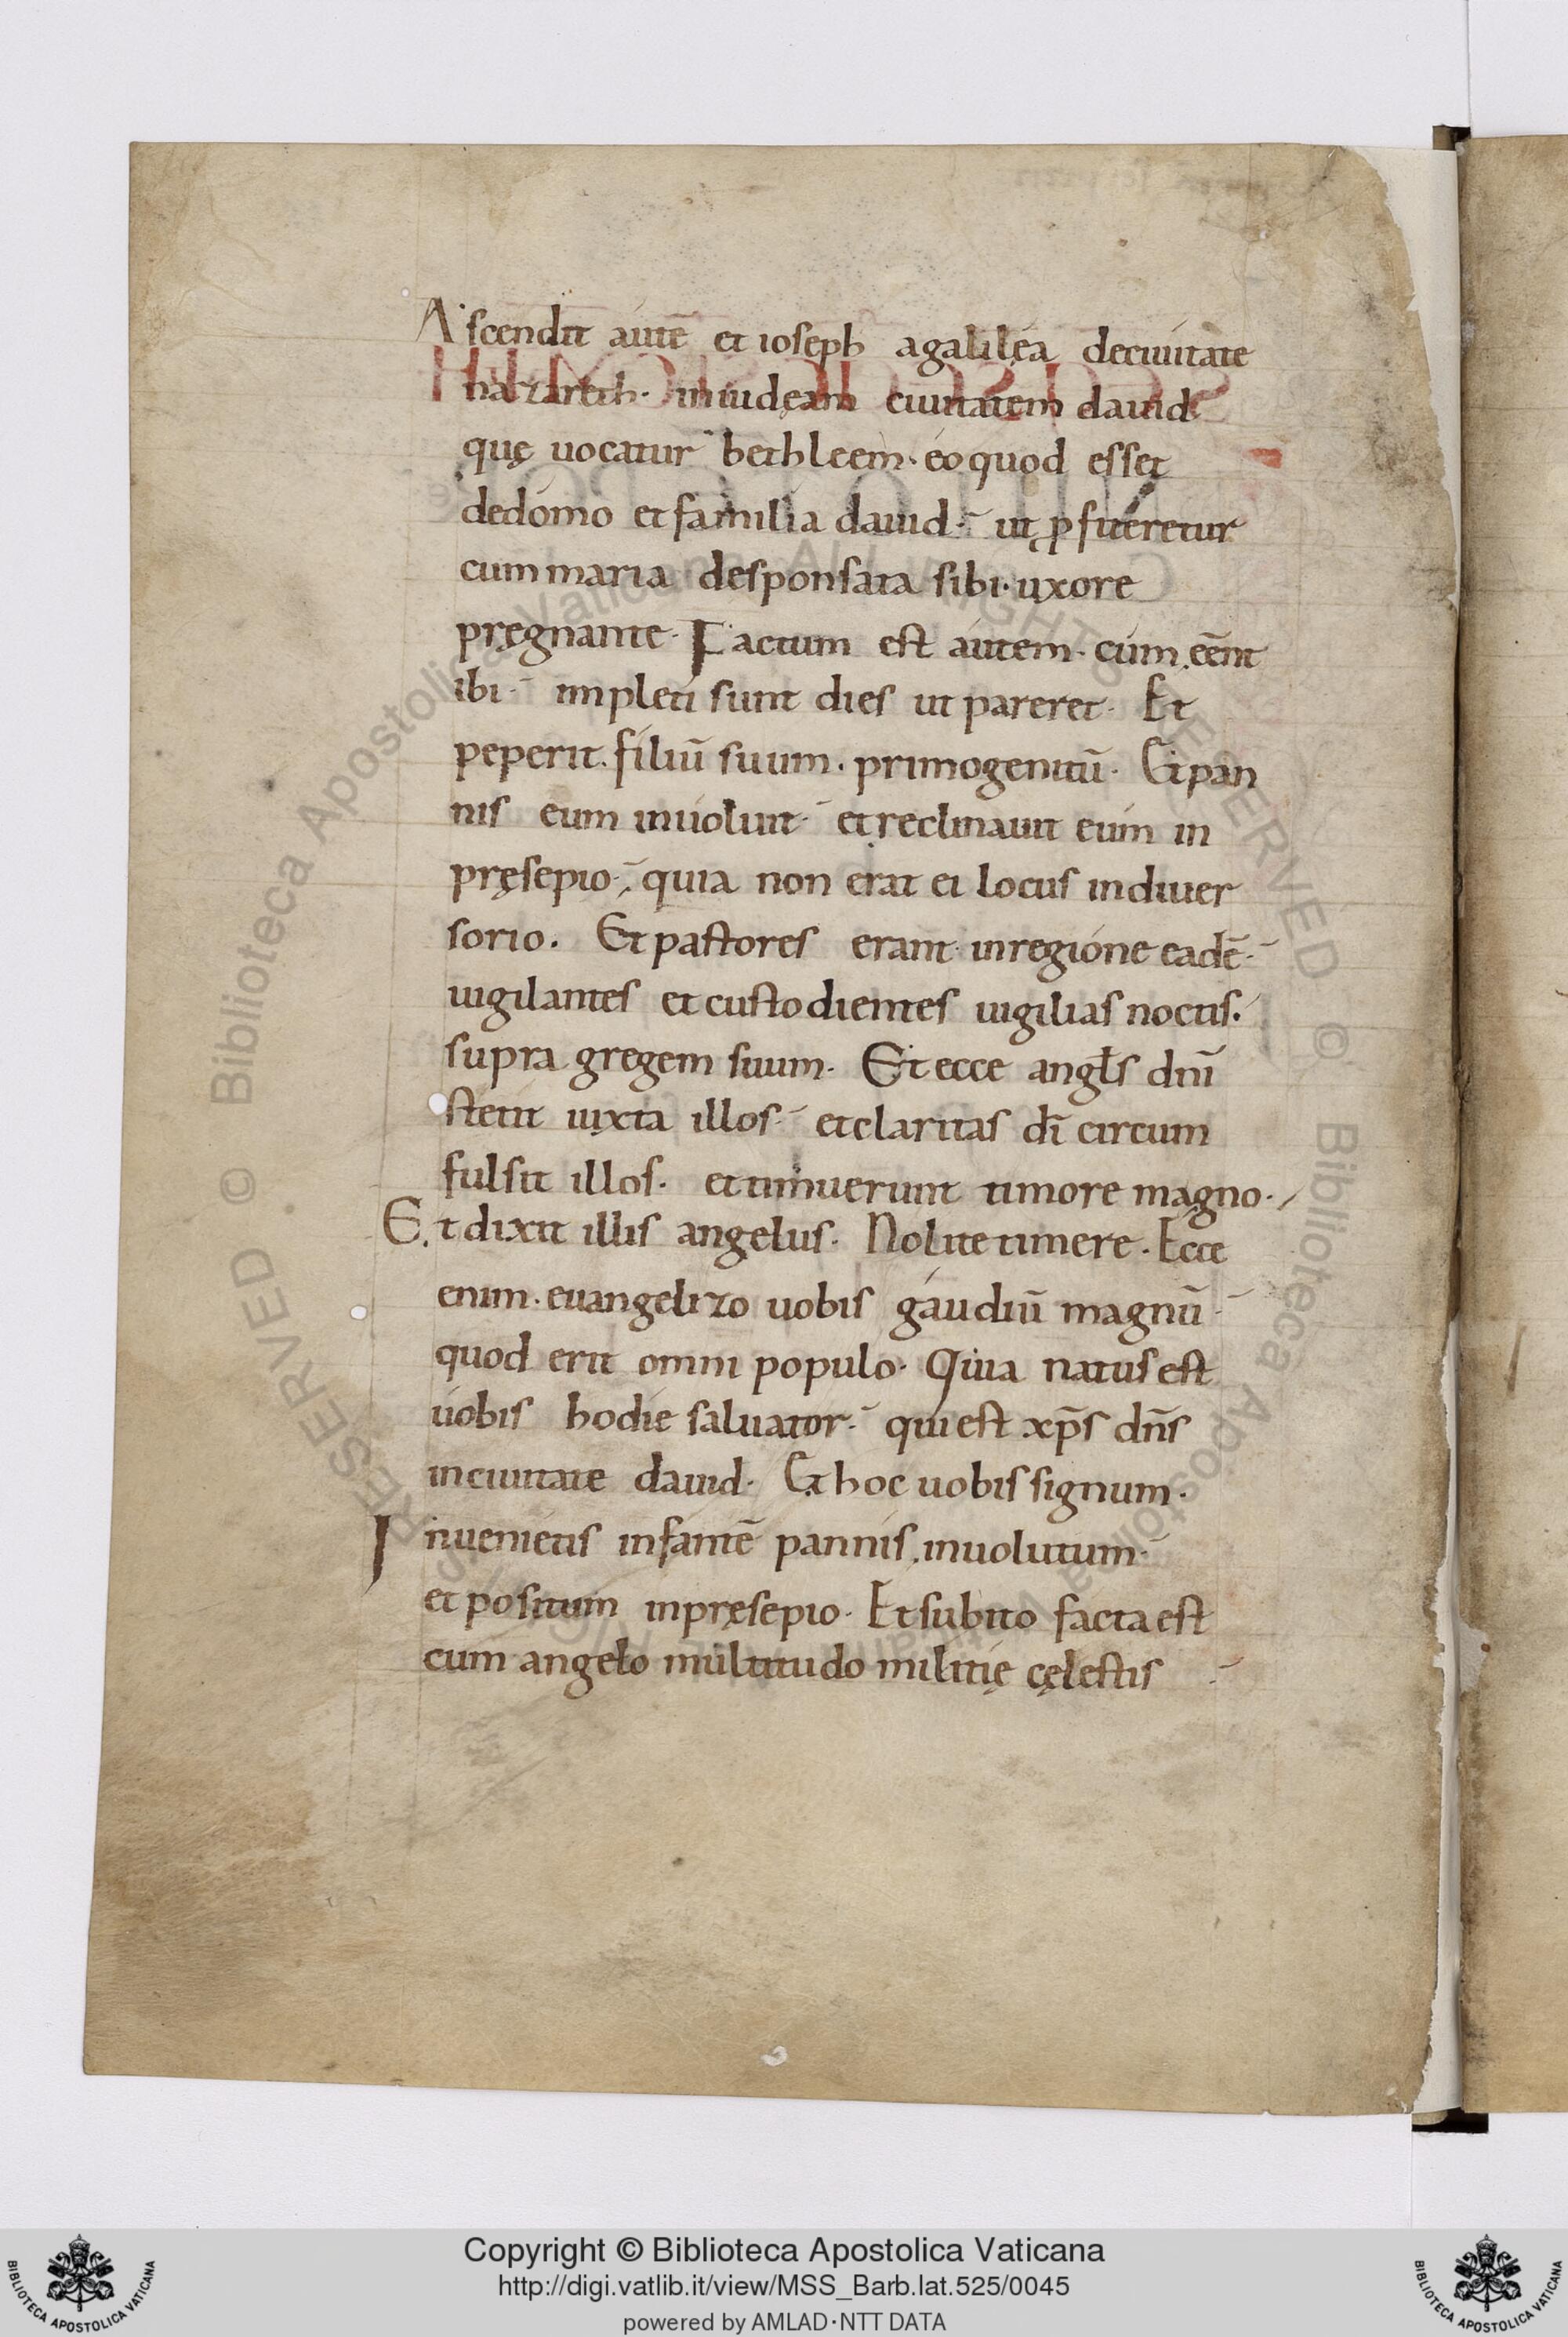 Ascendit autē et ioseph agalilęa deciuitate
nazareth· iniudęam ciuitatem dauid·
quę uocatur bethleem· eoquod esset
dedomo et familia dauid· ut ꝓfiteretur
cum maria desponsata sibi· uxore
pręgnante· Factum est autem· cum eēnt
ibi· impleti sunt dies ut pareret· Et
peperit· filiū suum· primogenitū· Et pan
nis eum inuoluit· et reclinauit eum in
pręsepio· quia non erat ei locus indiuer
sorio. Et pastores erant inregione eadē·
uigilantes et custodientes uigilias noctis·
supra gregem suum· Et ecce angl̄s dn̄i
stetit iuxta illos· et claritas dī circum
fulsit illos· et timuerunt timore magno·
Et dixit illis angelus· Nolite timere· Ecce
enim· euangelizo uobis gaudiū magnū·
quod erit omni populo· Quia natus est
uobis hodie saluator· qui est xp̄s dn̄s
inciuitate dauid· Et hoc uobis signum·
Inuenietis infantē pannis inuolutum·
et positum inpręsepio· Et subito facta est
cum angelo multitudo militię cęlestis
Copyright © Biblioteca Apostolica Vaticana
http://digi.vatlib.it/view/MSS_Barb.lat.525/0045
powered by AMLAD·NTT DATA